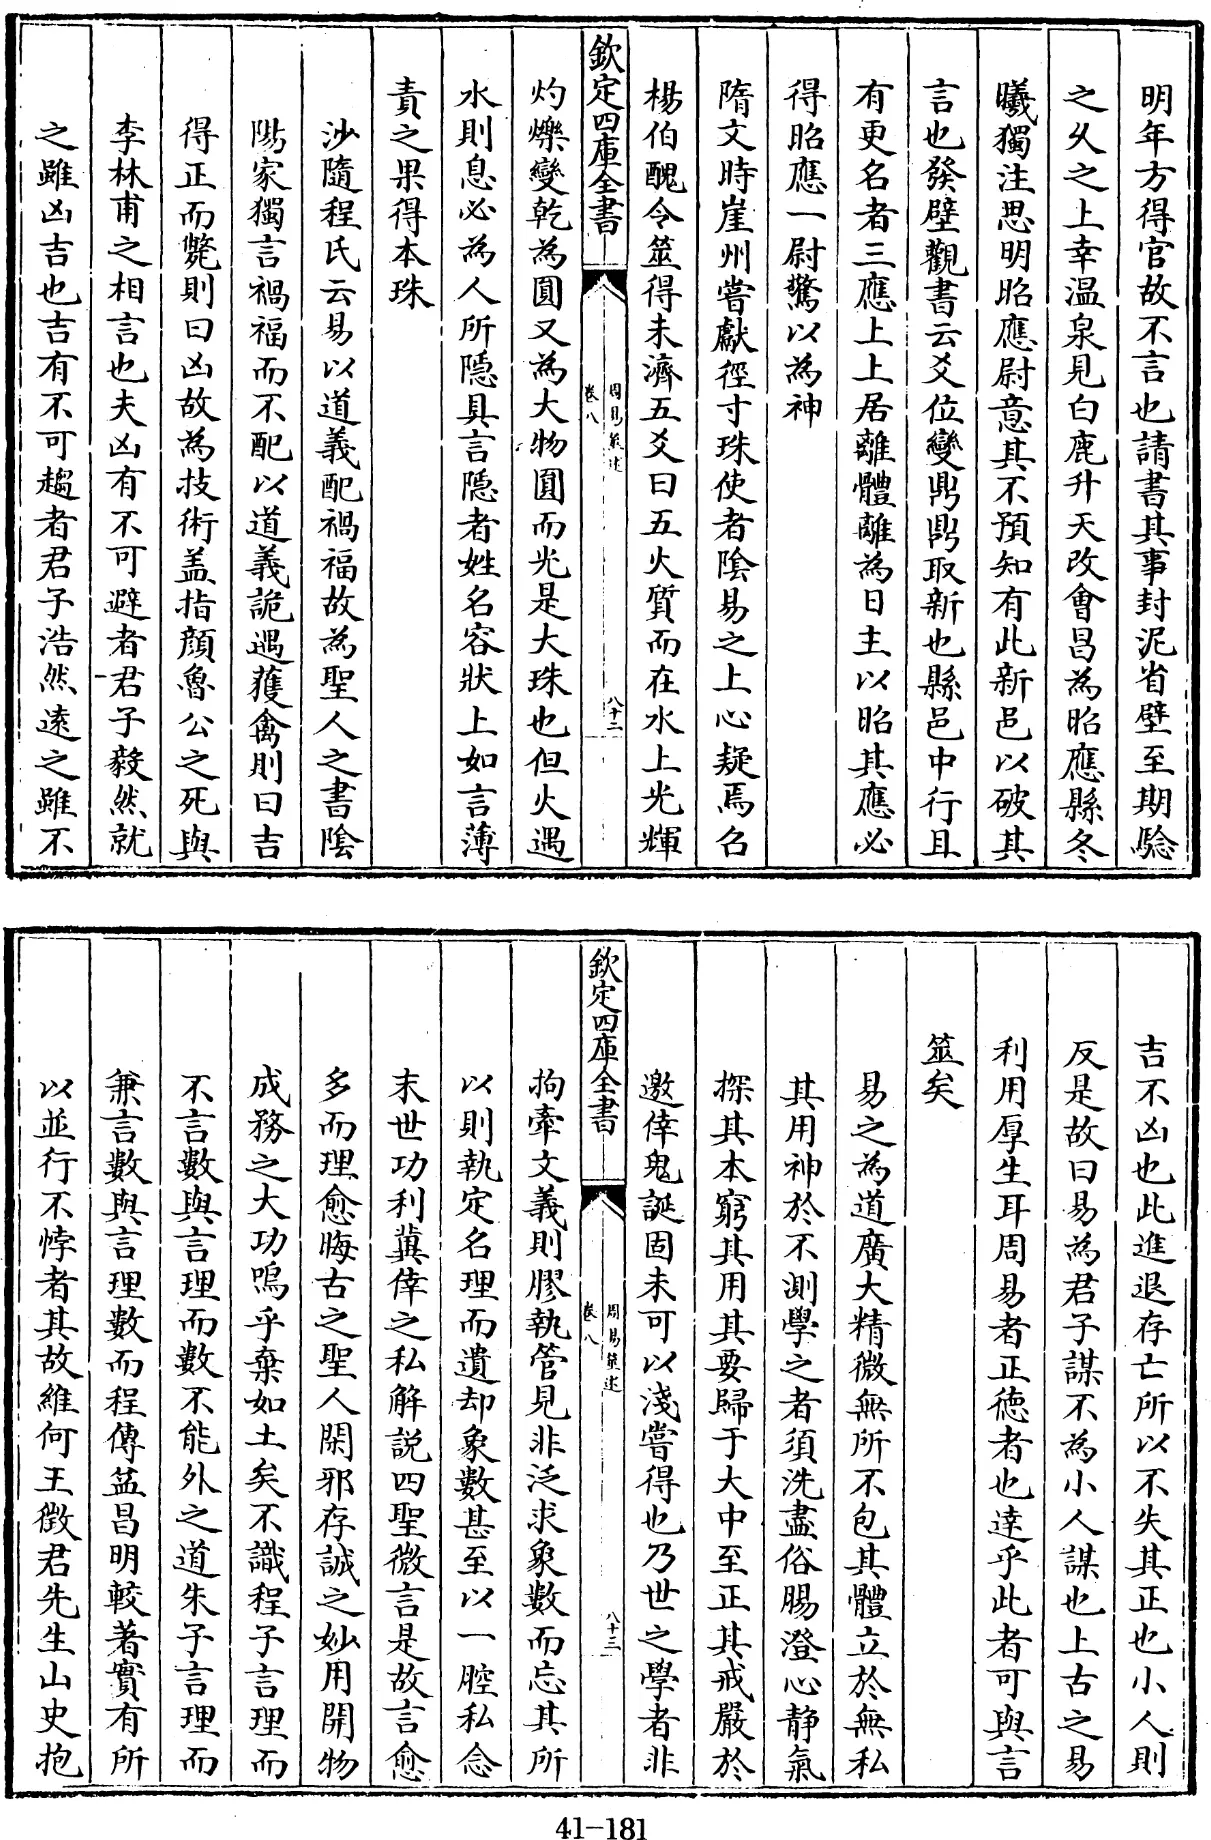 明年方得官故不言也請書其事封泥省壁至期驗
之乆之上幸温泉見白鹿升天改會昌為昭應縣冬
曦獨注思明昭應尉意其不預知有此新邑以破其
言也發壁觀書云爻位變鼎鼎取新也縣邑中行且
有更名者三應上上居離體離為日主以昭其應必
得昭應一尉驚以為神
隋文時崖州嘗獻徑寸珠使者陰易之上心疑焉名
楊伯醜令筮得未濟五爻曰五火質而在水上光輝
欽定四庫全書
周易筮述
卷八
八十二
灼爍變乾為圓又為大物圓而光是大珠也但火遇
水則息必為人所隱具言隱者姓名容狀上如言薄
責之果得本珠
沙隨程氏云易以道義配禍福故為聖人之書陰
陽家獨言禍福而不配以道義詭遇獲禽則曰吉
得正而斃則曰凶故為技術盖指顏魯公之死與
李林甫之相言也夫凶有不可避者君子毅然就
之雖凶吉也吉有不可趨者君子浩然逺之雖不
吉不凶也此進退存亡所以不失其正也小人則
反是故曰易為君子謀不為小人謀也上古之易
利用厚生耳周易者正徳者也逹乎此者可與言
筮矣
易之為道廣大精微無所不包其體立於無私
其用神於不測學之者須洗盡俗腸澄心静氣
探其本窮其用其要歸于大中至正其戒嚴於
邀倖鬼誕固未可以淺嘗得也乃世之學者非
欽定四庫全書
周易筮述
卷八
八十三
拘牽文義則膠執管見非泛求象數而忘其所
以則執定名理而遺却象數甚至以一腔私念
末世功利冀倖之私解説四聖微言是故言愈
多而理愈晦古之聖人閑邪存誠之妙用開物
成務之大功嗚乎棄如土矣不識程子言理而
不言數與言理而數不能外之道朱子言理而
兼言數與言理數而程傳益昌明較著實有所
以並行不悖者其故維何王徵君先生山史抱
41-181